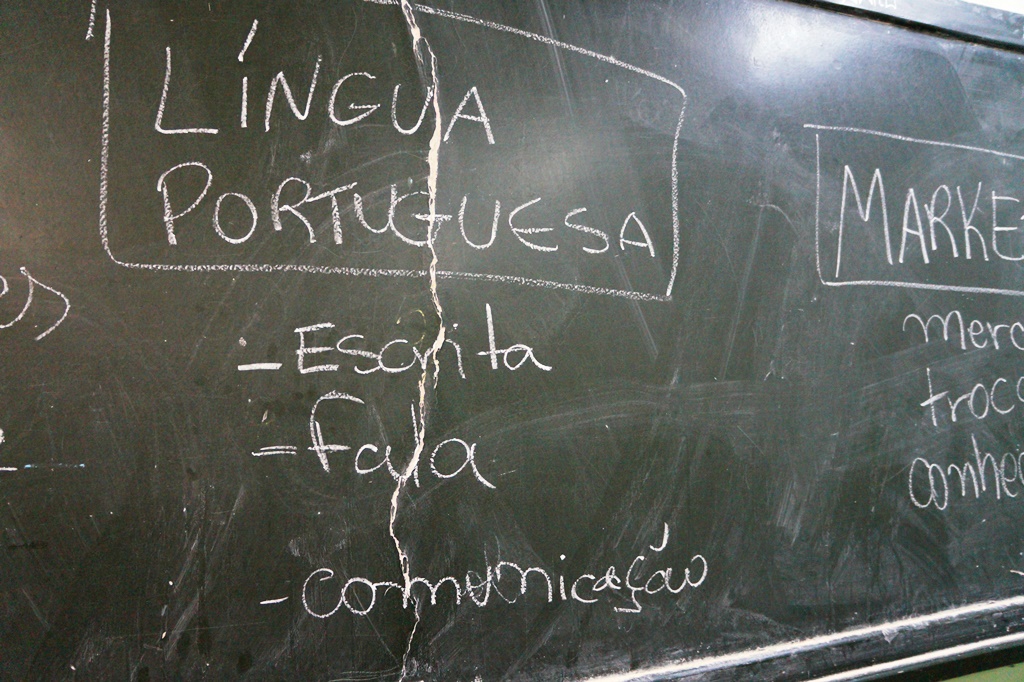 LÍNGUA
PORTUGUESA
- Escrita
- Fala
- comunicação
MARKE
merc
troca
conhec